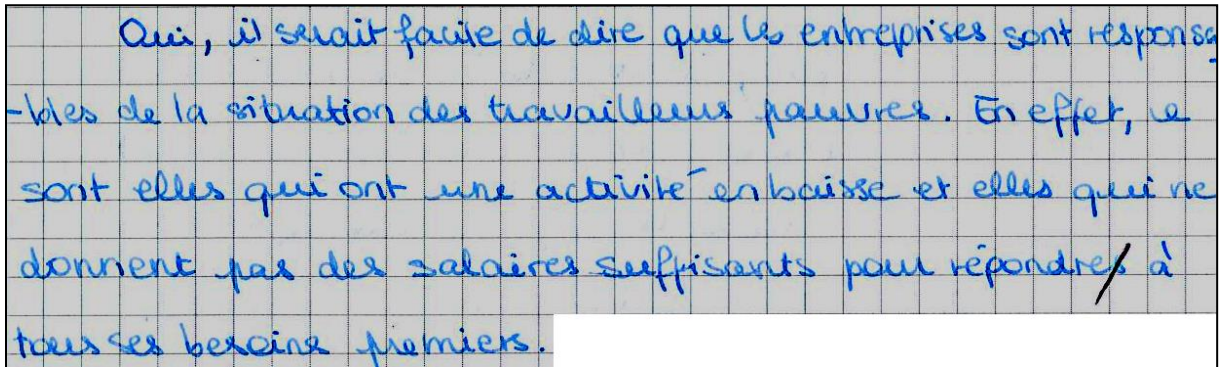 Oui, il serait facile de dire que les entreprises sont responsa
-bles de la situation des travailleurs pauvres. En effet, ce
sont elles qui ont une activité en baisse et elles qui ne
donnent pas des salaires suffisants pour répondre à
tous ses besoins premiers.